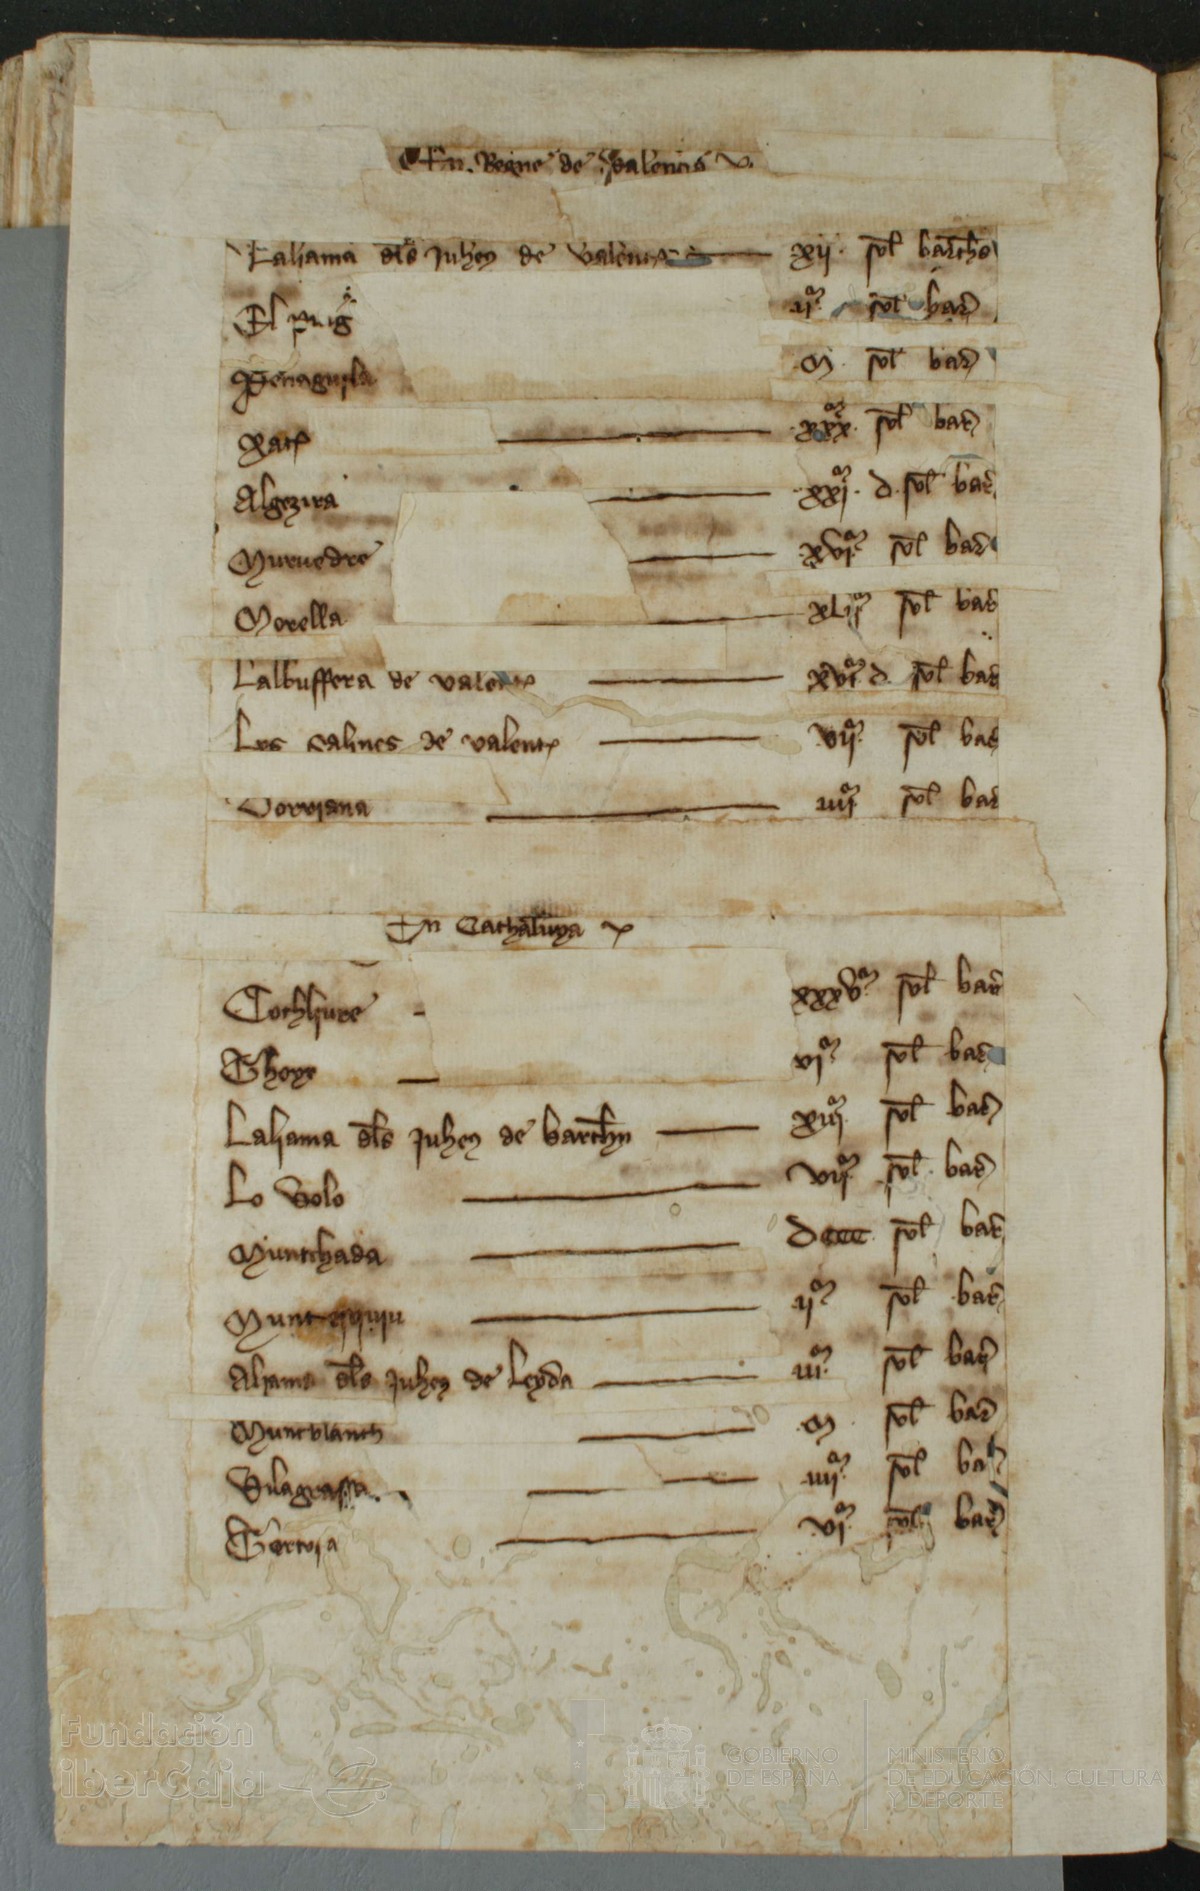 En Regne de Valencia
Laliama dls Juheus de Valencia xij sol barchs
El puig ijᵐ sol bar
Penaguila M sol bar
Xatᵃ xxxᵐ sol bar
Algezira xxjᵐ d sol bar
Muruedre xvjᵐ sol bar
Morella xlijᵐ sol bar
Lalbuffera de valencia xvjᵐ d sol bar
Les salines de valentᵃ vijᵐ sol bar
Borriana iiijᵐ sol bar
En Cathalunya
Cochliure xxxvᵐ sol bar
Thoyr vjᵐ sol bar
Laliama dls Juheus de barchn xiijᵐ sol bar
Lo Volo viijᵐ sol bar
Muntchada dccc sol bar
Munt ijᵐ sol bar
Aljama dls Juheus de Leyda iijᵐ sol bar
Muntblanch M sol bar
Vilagrassa iiijᵐ sol bar
Tortosa vjᵐ sol bar
Fundación
iberCaja
GOBIERNO
DE ESPAÑA
MINISTERIO
DE EDUCACIÓN, CULTURA
Y DEPORTE